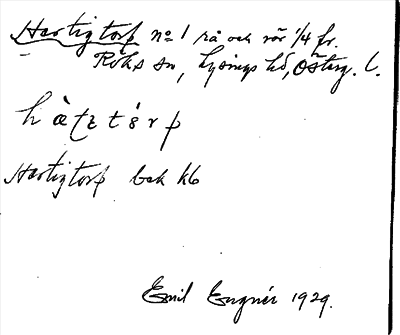 Hertigtorp no 1 rå och rör 1/4 fr.
Röks sn, Lysings hd, Österg. l.
Hertigtorp bek kb
Emil Engnér 1929.